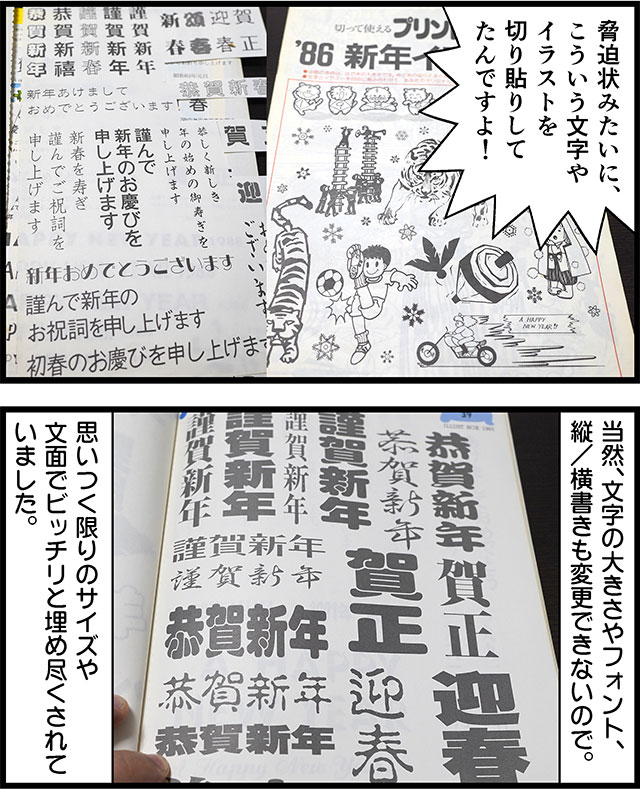 脅迫状みたいに、
こういう文字や
イラストを
切り貼りして
たんですよ！
切って使える
'86 新年イ
A HAPPY
NEW YEAR!!
恭賀新年
恭賀新禧
謹賀新年
謹賀新年
新春
頌春
迎春
賀正
恭賀新年
新年あけまして
おめでとうございます
恭しく新しき
年の始めの御寿ぎを
申し上げます
謹んで
新年のお慶びを
申し上げます
新春を寿ぎ
謹んでご祝詞を
申し上げます
賀正
迎
新年おめでとうございます
謹んで新年の
お祝詞を申し上げます
初春のお慶びを申し上げます
当然、文字の大きさやフォント、
縦／横書きも変更できないので。
恭賀新年
恭賀新年
謹賀新年
謹賀新年
謹賀新年
謹賀新年
賀正
賀正
謹賀新年
謹賀新年
恭賀新年
恭賀新年
恭賀新年
迎春
迎春
思いつく限りのサイズや
文面でビッチリと埋め尽くされて
いました。